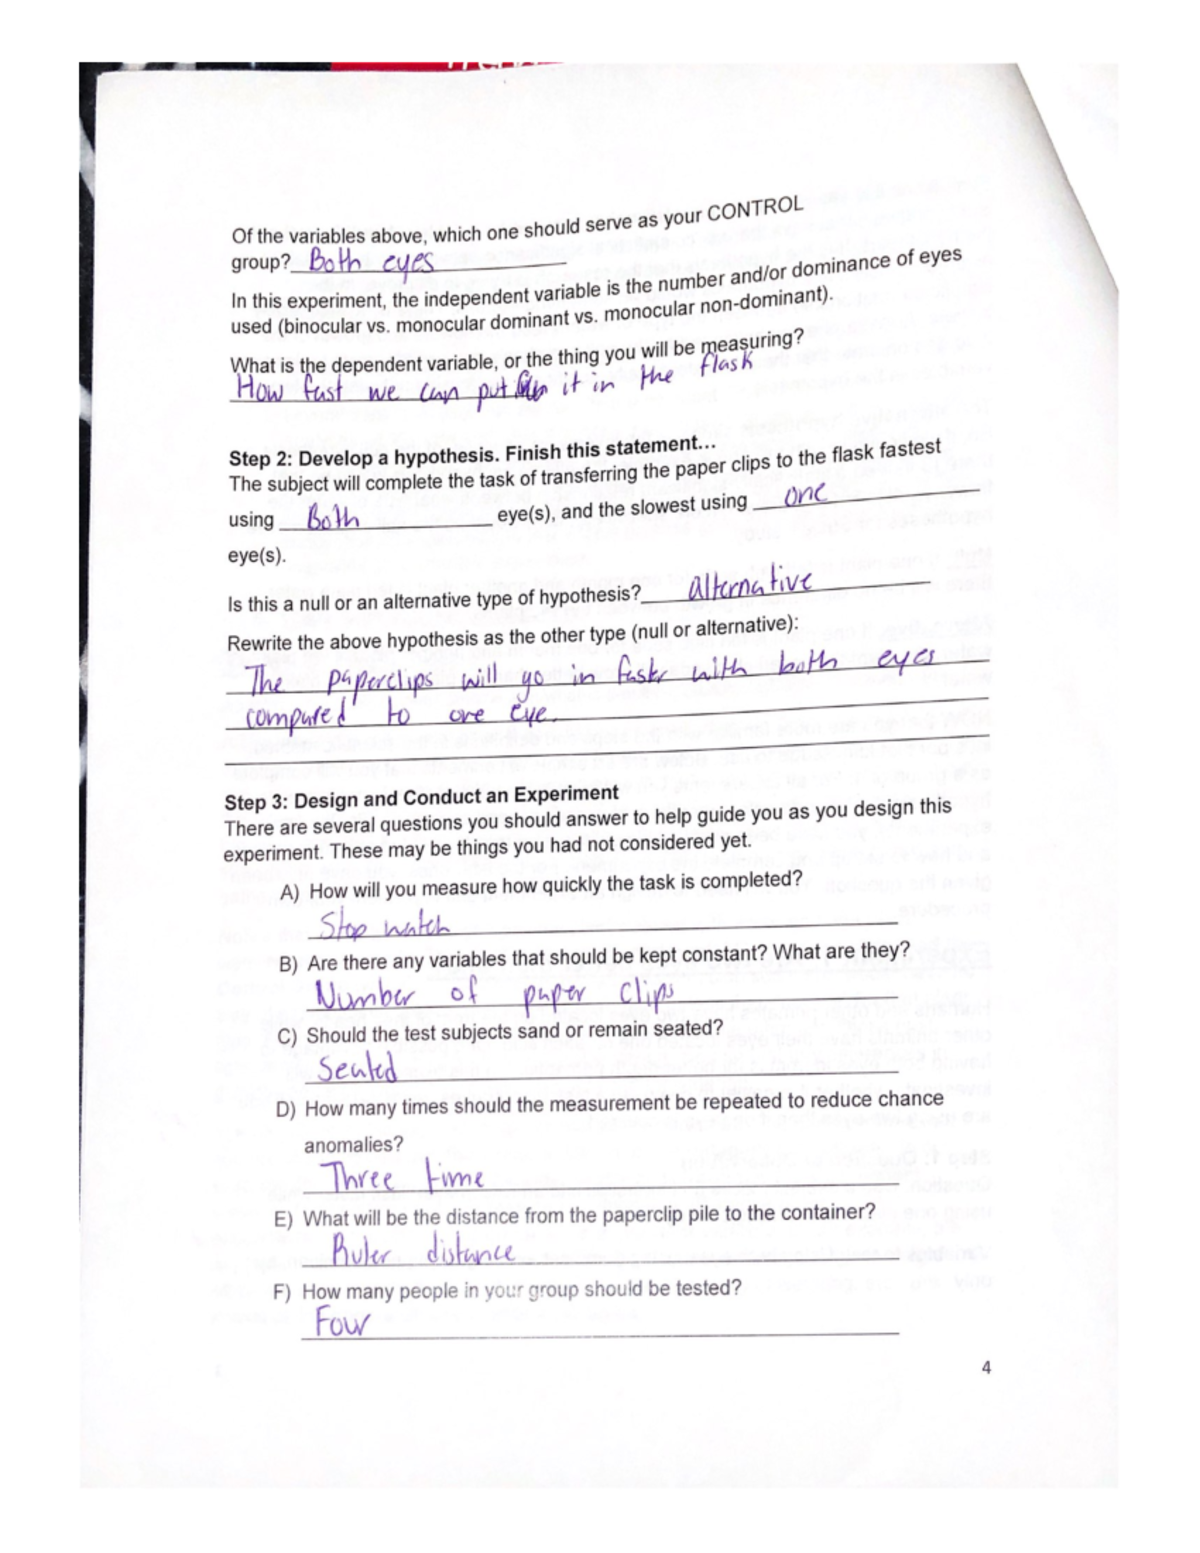 Of the variables above, which one should serve as your CONTROL
group? Both eyes
In this experiment, the independent variable is the number and/or dominance of eyes
used (binocular vs. monocular dominant vs. monocular non-dominant).
What is the dependent variable, or the thing you will be measuring?
How fast we can put it in the flask
Step 2: Develop a hypothesis. Finish this statement...
The subject will complete the task of transferring the paper clips to the flask fastest
using Both eye(s), and the slowest using one
eye(s).
Is this a null or an alternative type of hypothesis? alternative
Rewrite the above hypothesis as the other type (null or alternative):
The paperclips will go in faster with both eyes
compared to one eye.
Step 3: Design and Conduct an Experiment
There are several questions you should answer to help guide you as you design this
experiment. These may be things you had not considered yet.
A) How will you measure how quickly the task is completed?
Stop watch
B) Are there any variables that should be kept constant? What are they?
Number of paper clips
C) Should the test subjects sand or remain seated?
Seated
D) How many times should the measurement be repeated to reduce chance
anomalies?
Three time
E) What will be the distance from the paperclip pile to the container?
Ruler distance
F) How many people in your group should be tested?
Four
4